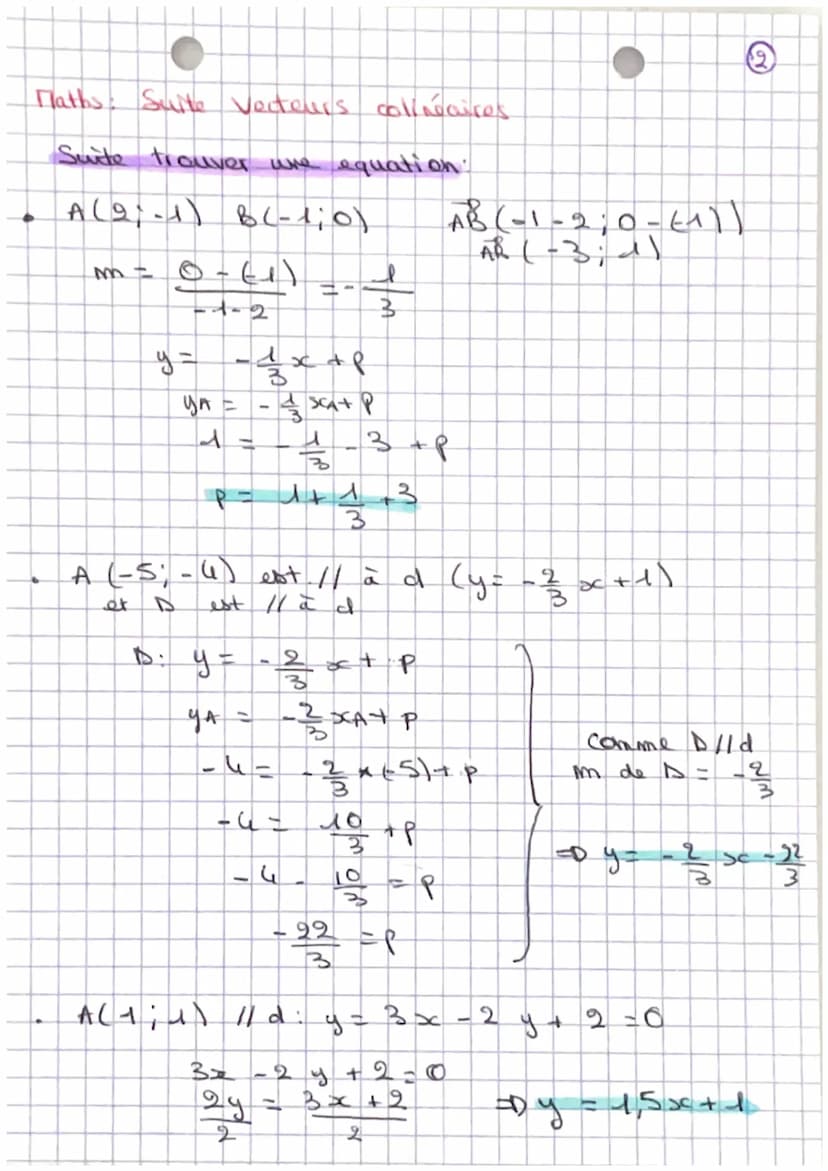 2
Maths: Suite vecteurs colinéaires
Suite trouver une equation:
• A(2;-1) B(-1;0) AB(-1-2;0-(-1))
AB(-3;1)
m = 0-(-1)/-1-2 = -1/3
y = -1/3 x + p
yA = -1/3 xA + p
1 = -1/3 - 3 + p
p = 1 + 1/3 + 3
• A(-5;-4) est // à d (y = -2/3 x + 1)
et D est // à d
D: y = -2/3 x + p
yA = -2/3 xA + p
-4 = -2/3 × (-5) + p
-4 = 10/3 + p
-4 - 10/3 = p
-22/3 = p
comme D//d
m de D = -2/3
=> y = -2/3 x - 22/3
• A(1;1) // d: y = 3x - 2y + 2 = 0
3x - 2y + 2 = 0
2y/2 = 3x + 2/2 => y = 1,5x + 1